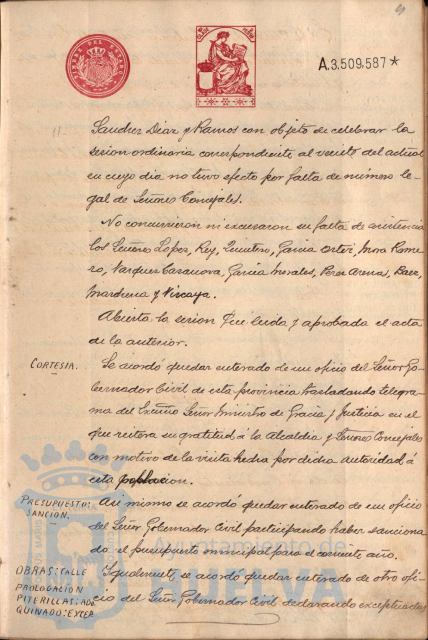 TIMBRE DEL ESTADO
A.3.509.587*
9
11-
Sanchez Diaz y Ramos con objeto de celebrar la
sesion ordinaria correspondiente al veinte del actual
en cuyo dia no tuvo efecto por falta de número le-
gal de Señores Concejales.
No concurrieron ni excusaron su falta de asistencia
los Señores Lopez, Rey, Quintero, Garcia Ortiz, Mora Rome-
ro, Vazquez Casanova, Garcia Morales, Perez Arenas, Baez,
Marchena y Vizcaya.
Abierta la sesion fué leida y aprobada el acta
de la anterior.
CORTESIA.
Se acordó quedar enterado de un oficio del Señor Go-
bernador Civil de esta provincia trasladando telegra-
ma del Excmo Señor Ministro de Gracia y Justicia en el
que reitera su gratitud á la Alcaldia y Señores Concejales
con motivo de la visita hecha por dicha autoridad á
esta poblacion.
PRESUPUESTO:
SANCION.
Asi mismo se acordó quedar enterado de un oficio
del Señor Gobernador Civil participando haber sanciona-
do el presupuesto municipal para el corriente año.
OBRAS: CALLE
PROLOGACION
PITERILLAS: ADO
QUINADO: EXCEP
Igualmente se acordó quedar enterado de otro ofi-
cio del Señor Gobernador Civil declarando exceptuadas
Ayuntamiento de
HUELVA